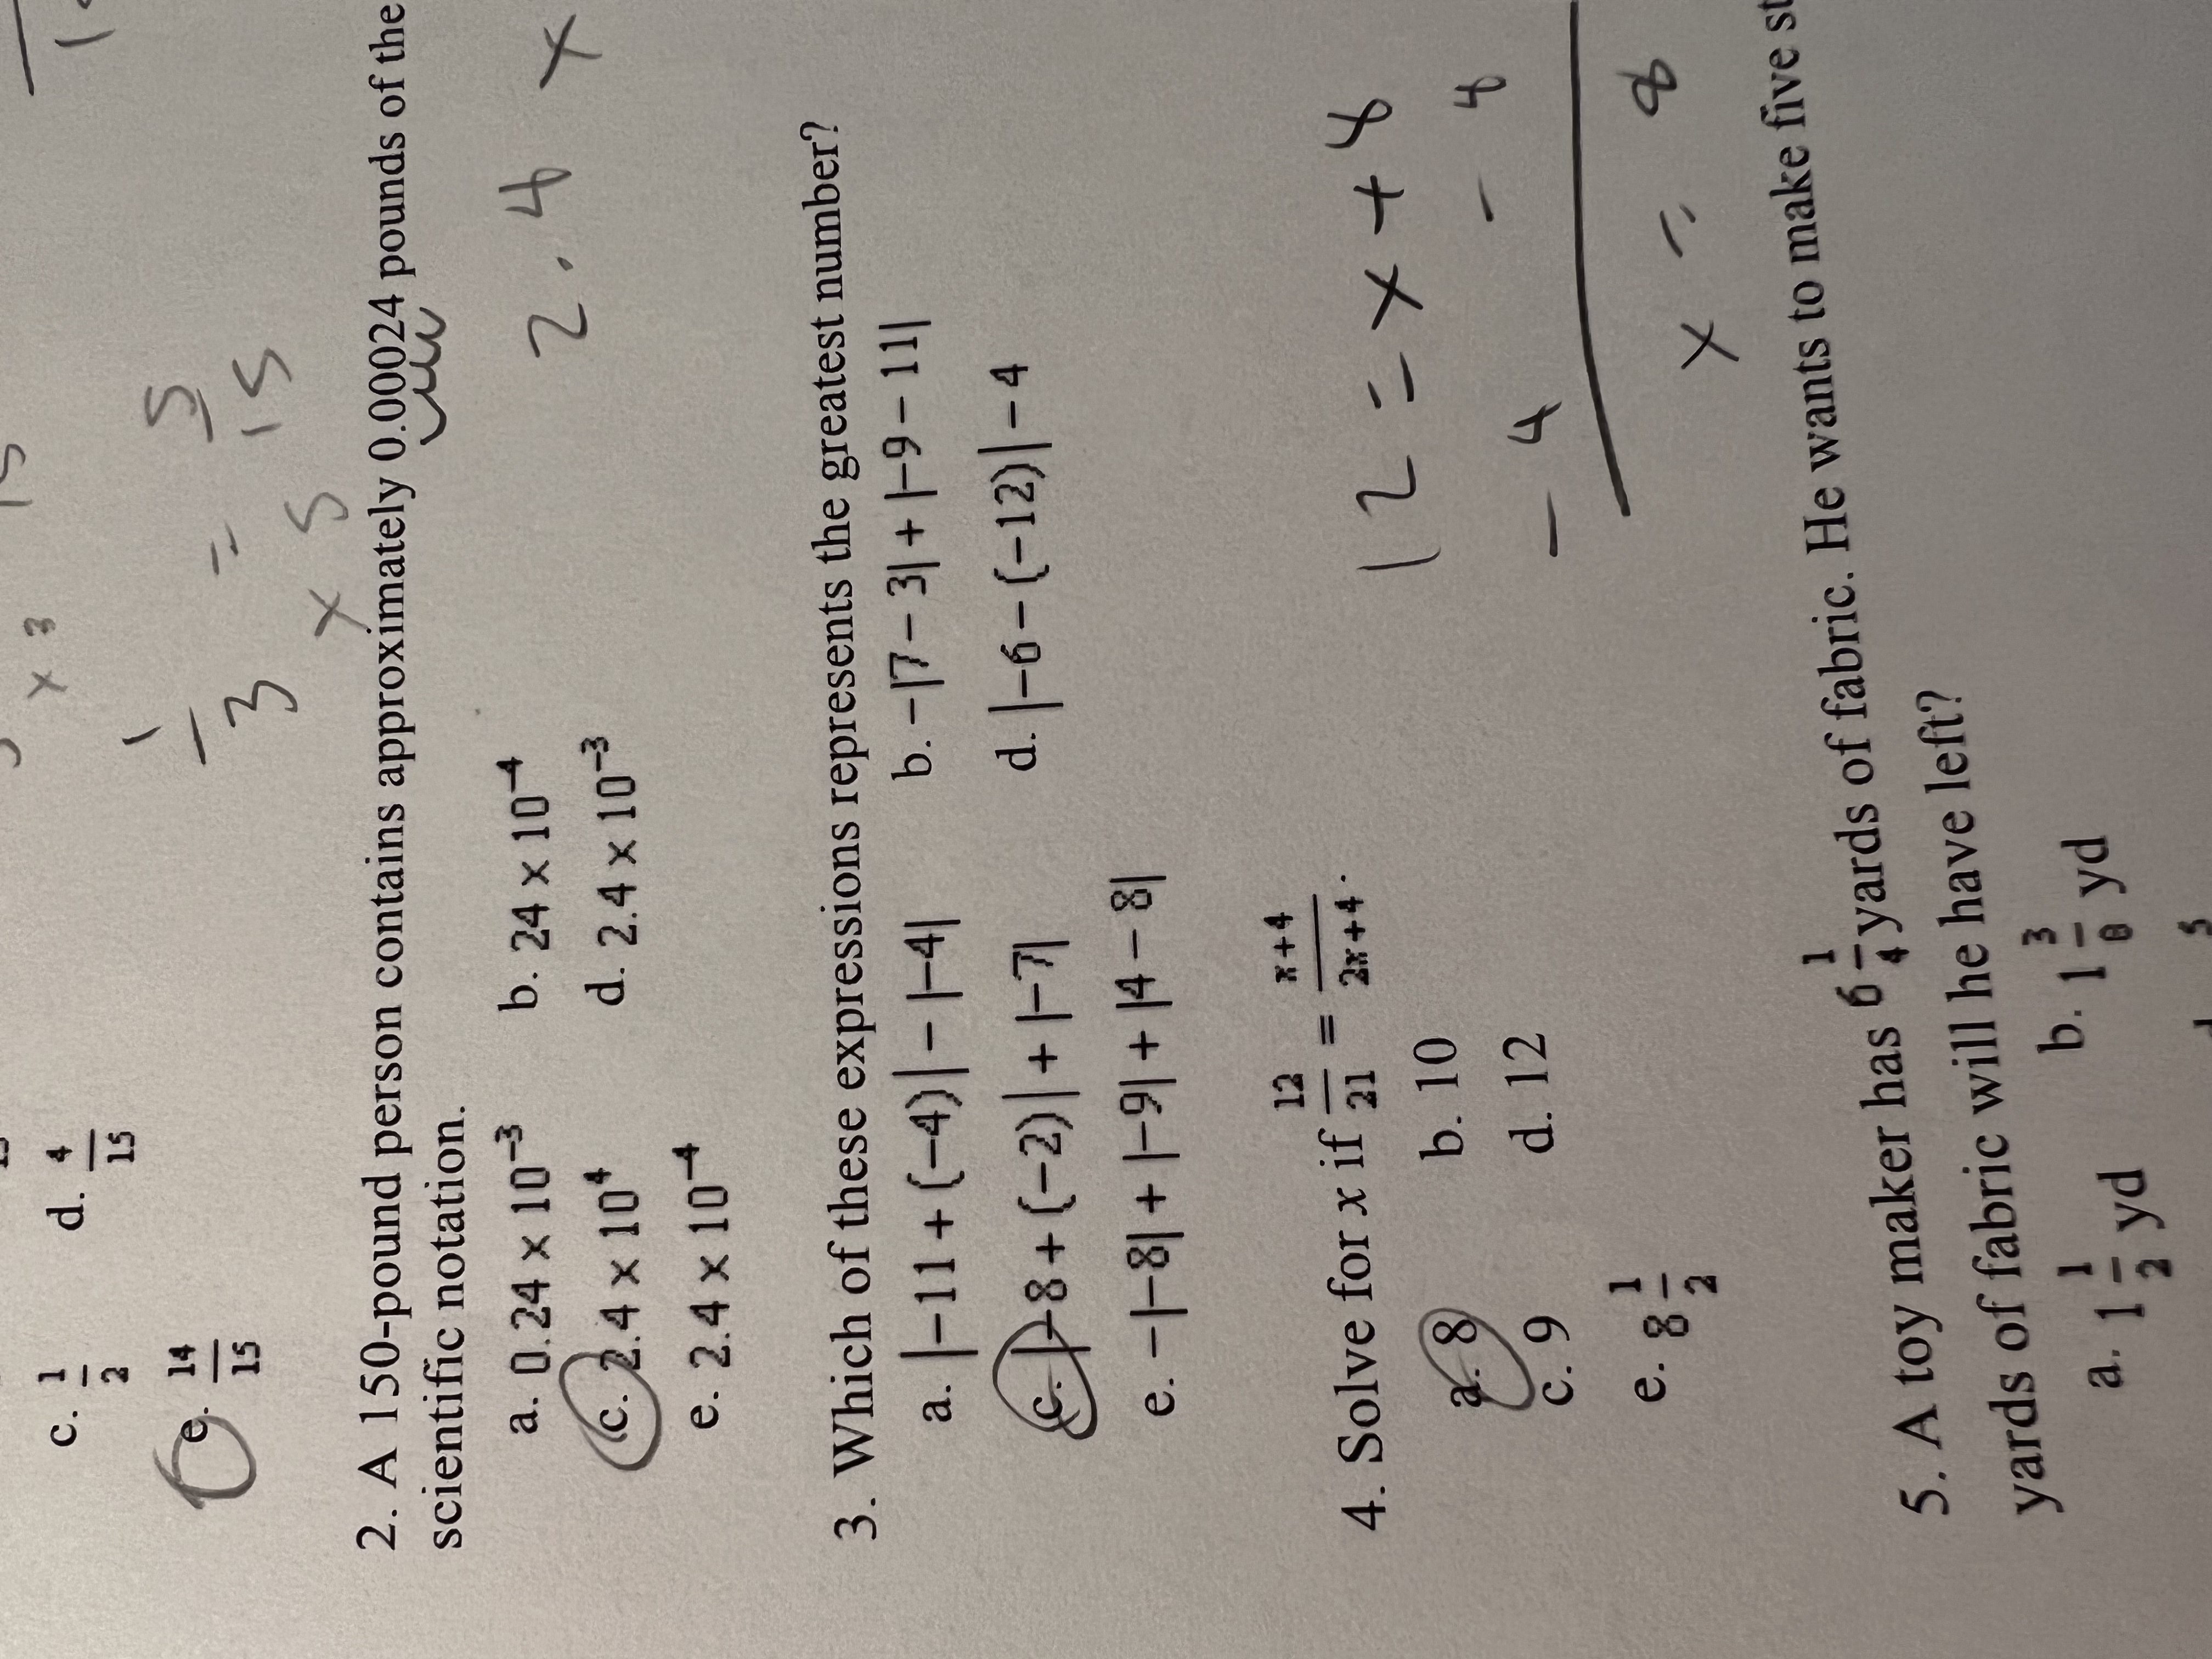 c. 1/2 d. 4/15
x 3
e. 14/15
1/3 x 5 = 5/15
2. A 150-pound person contains approximately 0.00024 pounds of the
scientific notation.
a. 0.24 × 10⁻³ b. 24 × 10⁻⁴
c. 2.4 × 10⁴ d. 2.4 × 10⁻³
e. 2.4 × 10⁻⁴
2.4 x
3. Which of these expressions represents the greatest number?
a. |−11 + (−4)| − |−4| b. −|7 − 3| + |−9 − 11|
c. |−8 + (−2)| + |−7| d. |−6 − (−12)| − 4
e. −|−8| + |−9| + |4 − 8|
4. Solve for x if 12/21 = x+4/2x+4.
a. 8 b. 10
c. 9 d. 12
e. 8 1/2
12 = x + 4
- 4 - 4
x = 8
5. A toy maker has 6 1/4 yards of fabric. He wants to make five
yards of fabric will he have left?
a. 1 1/2 yd b. 1 3/8 yd